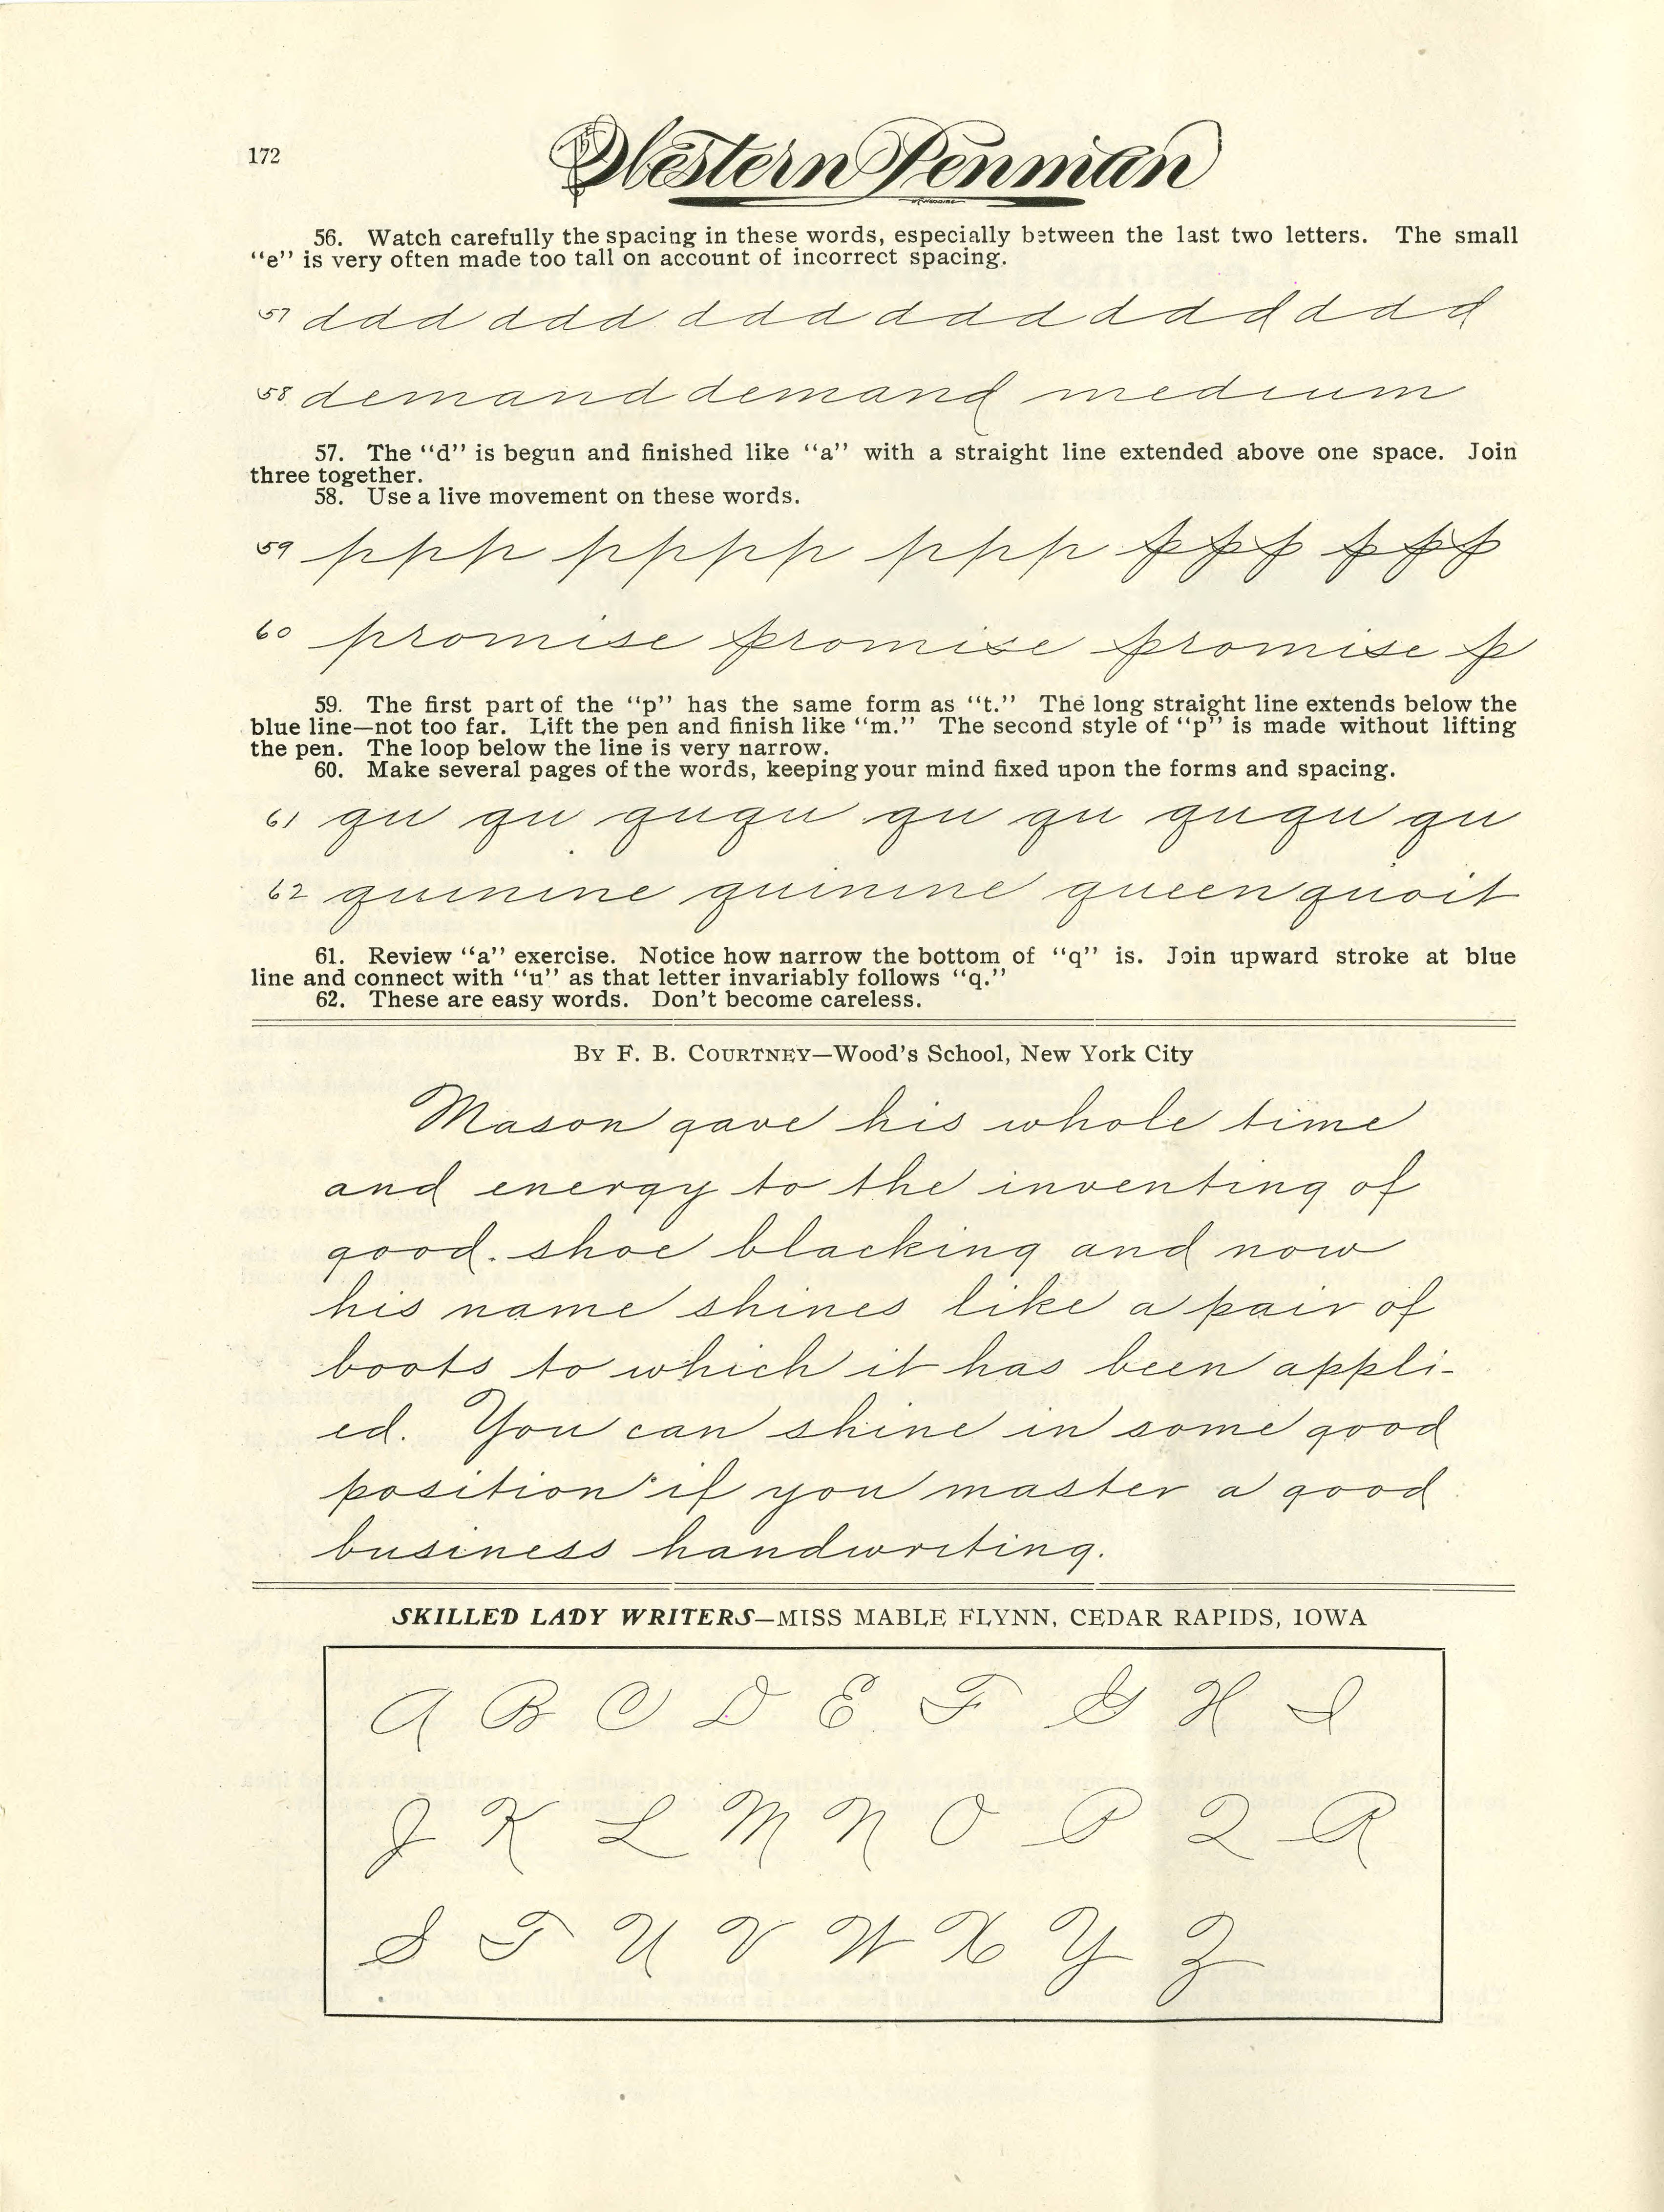 172
Western Penman
56. Watch carefully the spacing in these words, especially between the last two letters. The small
“e” is very often made too tall on account of incorrect spacing.
57 ddd ddd ddd ddd ddd ddd
58 demand demand medium
57. The “d” is begun and finished like “a” with a straight line extended above one space. Join
three together.
58. Use a live movement on these words.
59 ppp pppp ppp ppp ppp
60 promise promise promise p
59. The first part of the “p” has the same form as “t.” The long straight line extends below the
blue line—not too far. Lift the pen and finish like “m.” The second style of “p” is made without lifting
the pen. The loop below the line is very narrow.
60. Make several pages of the words, keeping your mind fixed upon the forms and spacing.
61 qu qu ququ qu qu ququ qu
62 quinine quinine queen quoit
61. Review “a” exercise. Notice how narrow the bottom of “q” is. Join upward stroke at blue
line and connect with “u” as that letter invariably follows “q.”
62. These are easy words. Don't become careless.
BY F. B. COURTNEY—Wood's School, New York City
Mason gave his whole time
and energy to the inventing of
good shoe blacking and now
his name shines like a pair of
boots to which it has been appli-
ed. You can shine in some good
position if you master a good
business handwriting.
SKILLED LADY WRITERS—MISS MABLE FLYNN, CEDAR RAPIDS, IOWA
A B C D E F G H I
J K L M N O P Q R
S T U V W X Y Z